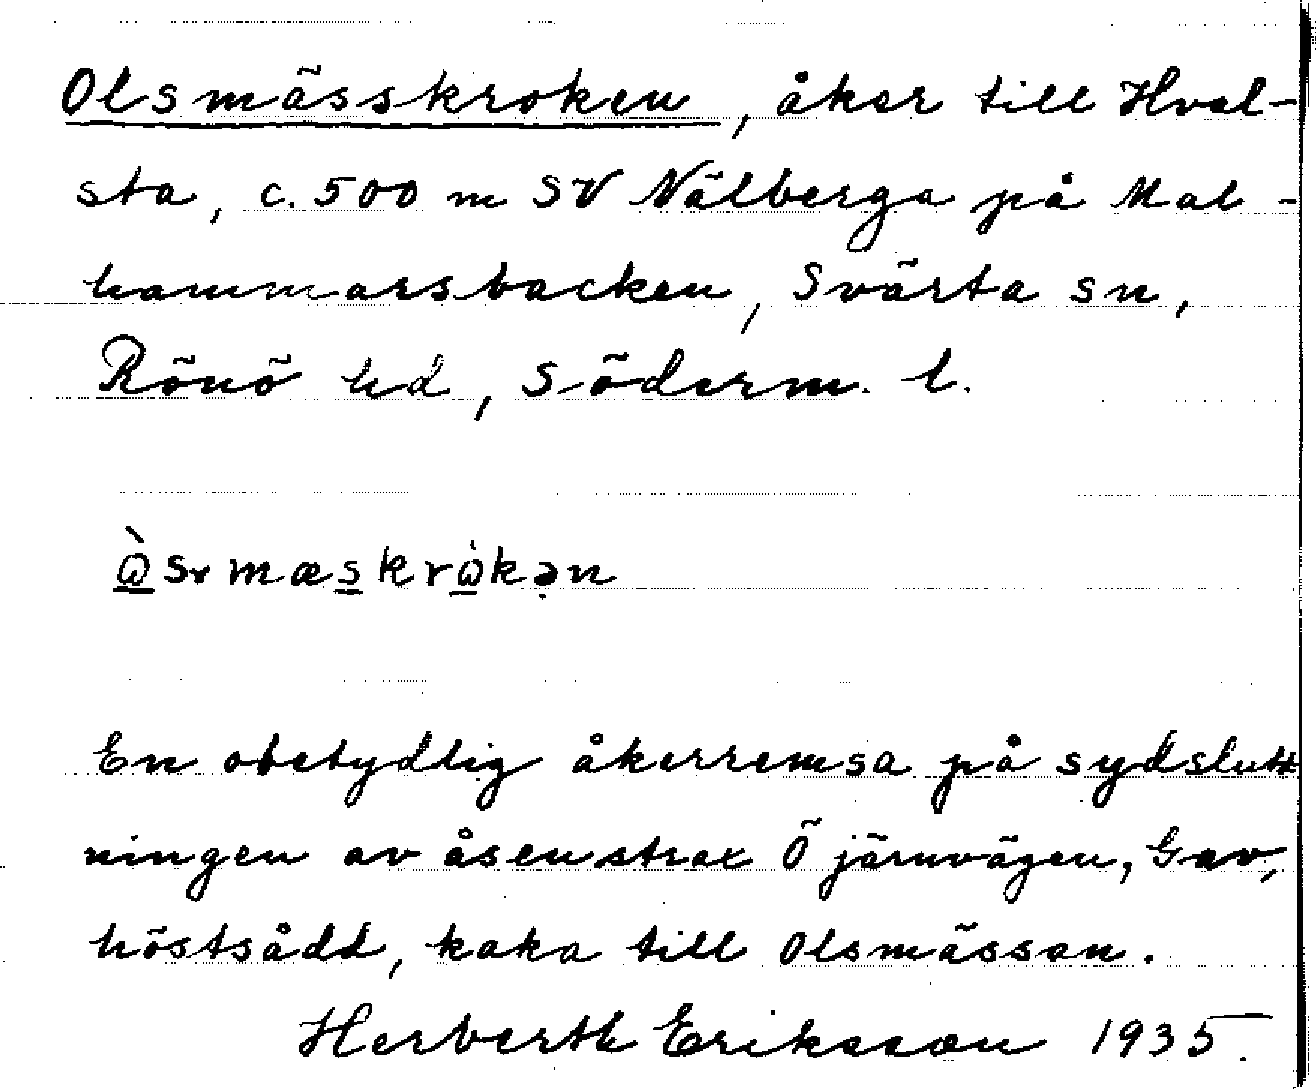 Olsmässkroken, åker till Hval-
sta, c. 500 m SV Nälberga på Mal-
hammarsbacken, Svärta sn,
Rönö hd, Söderm. l.
En obetydlig åkerremsa på sydslutt
ningen av åsen strax Ö järnvägen, Gav,
höstsådd, kaka till Olsmässan.
Herberth Eriksson 1935.